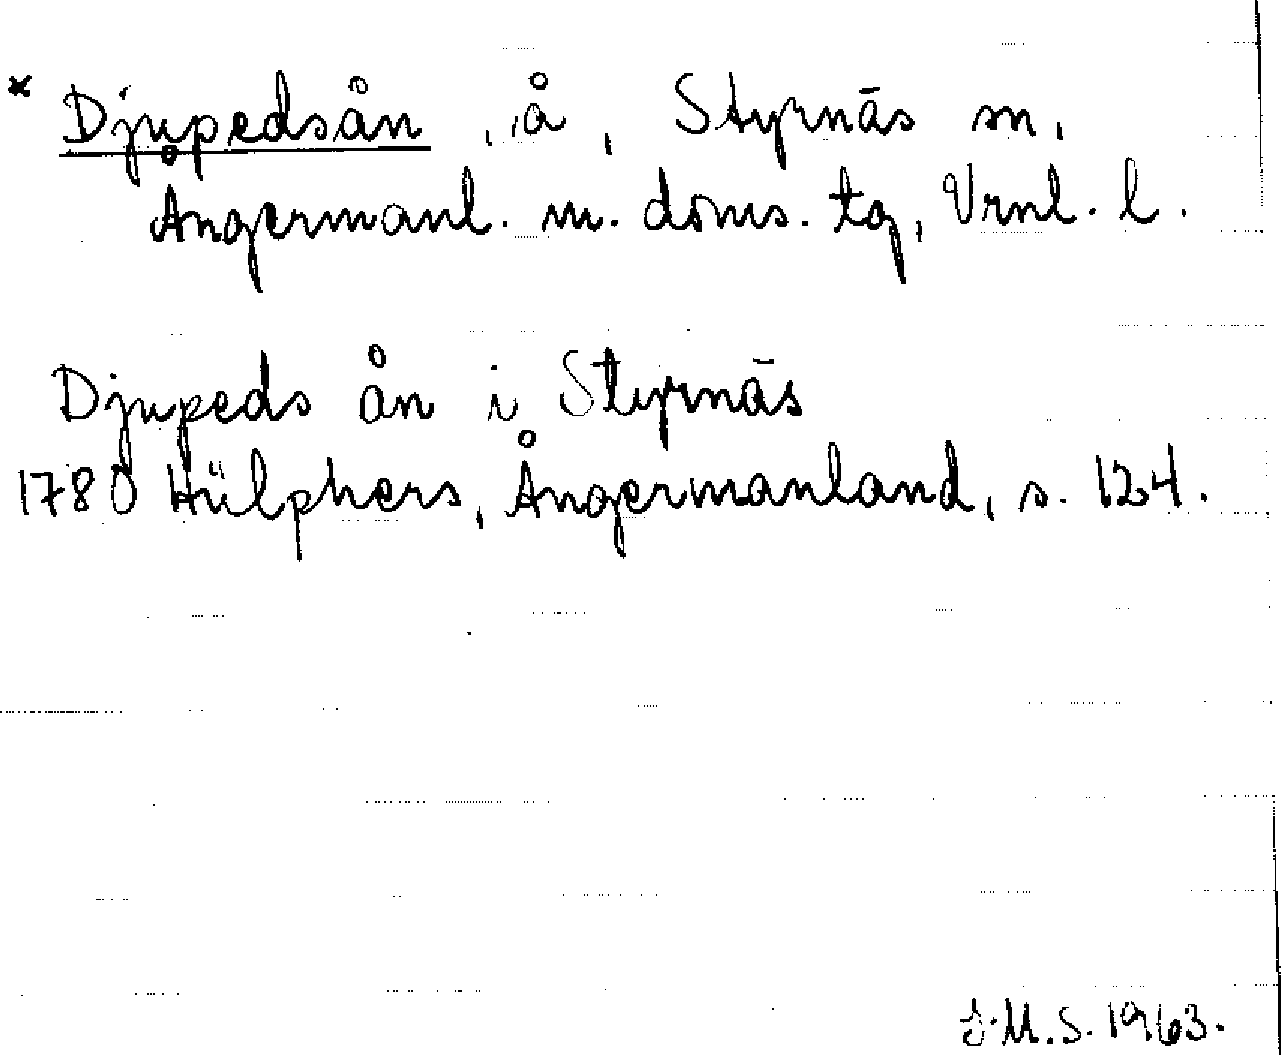 * Djupedsån, å, Styrnäs sn,
Ångermanl. m. doms. tg, Vrnl. l.
Djupeds ån i Styrnäs
1780 Hülphers, Ångermanland, s. 124.
J.M.S. 1963.